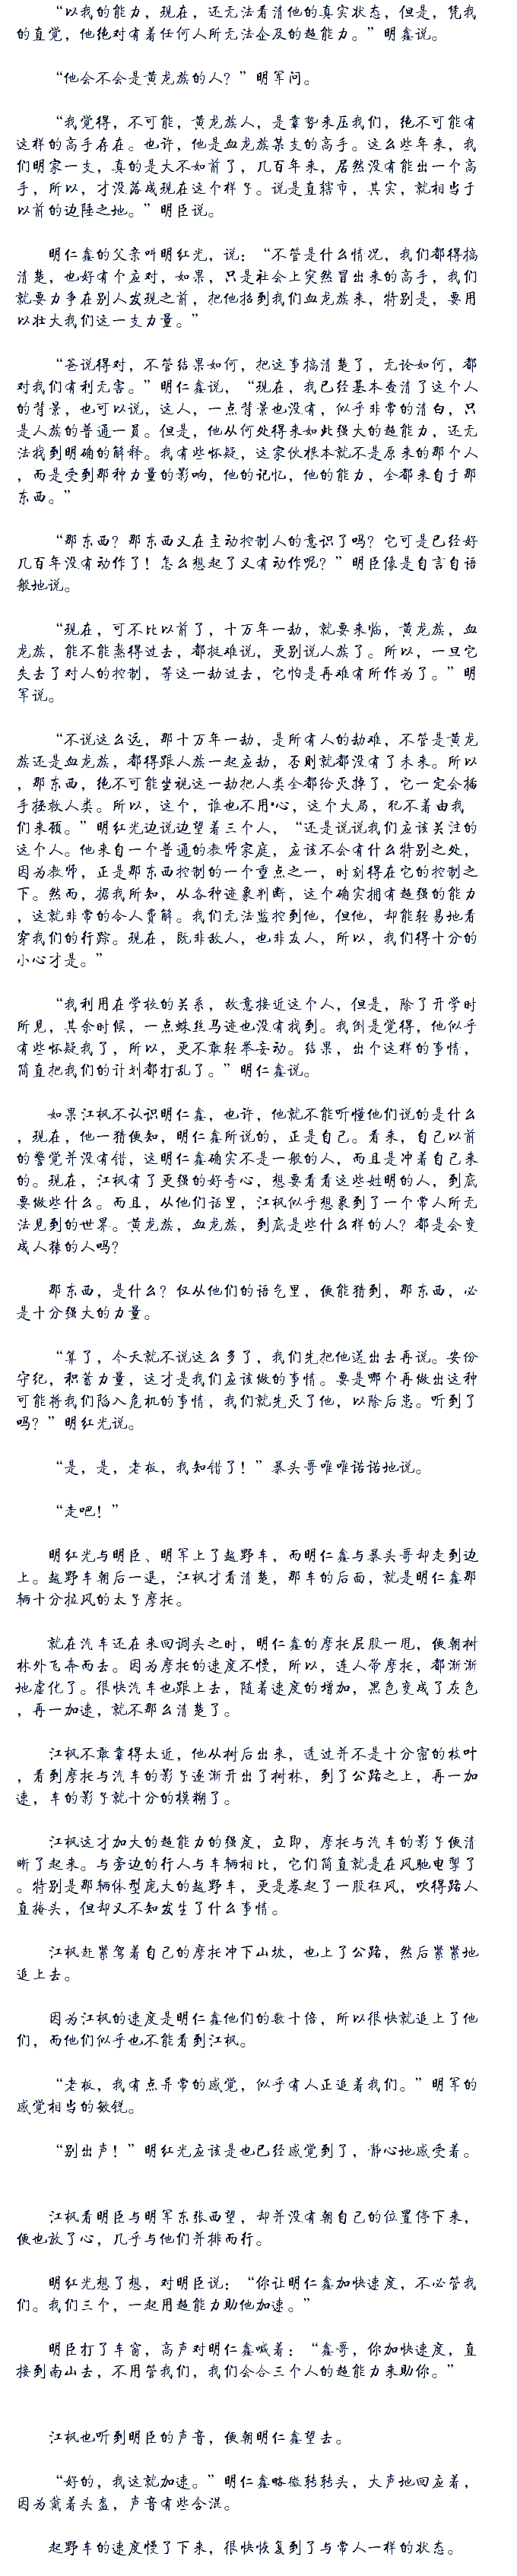 “以我的能力，现在，还无法看清他的真实状态，但是，凭我
的直觉，他绝对有着任何人所无法企及的超能力。”明鑫说。
“他会不会是黄龙族的人？”明军问。
“我觉得，不可能，黄龙族人，是靠势来压我们，绝不可能有
这样的高手存在。也许，他是血龙族某支的高手。这么些年来，我
们明家一支，真的是大不如前了，几百年来，居然没有能出一个高
手，所以，才没落成现在这个样子。说是直辖市，其实，就相当于
以前的边陲之地。”明臣说。
明仁鑫的父亲叫明红光，说：“不管是什么情况，我们都得搞
清楚，也好有个应对，如果，只是社会上突然冒出来的高手，我们
就要力争在别人发现之前，把他招到我们血龙族来，特别是，要用
以壮大我们这一支力量。”
“爸说得对，不管结果如何，把这事搞清楚了，无论如何，都
对我们有利无害。”明仁鑫说，“现在，我已经基本查清了这个人
的背景，也可以说，这人，一点背景也没有，似乎非常的清白，只
是人族的普通一员。但是，他从何处得来如此强大的超能力，还无
法找到明确的解释。我有些怀疑，这家伙根本就不是原来的那个人
，而是受到那种力量的影响，他的记忆，他的能力，全都来自于那
东西。”
“那东西？那东西又在主动控制人的意识了吗？它可是已经好
几百年没有动作了！怎么想起了又有动作呢？”明臣像是自言自语
般地说。
“现在，可不比以前了，十万年一劫，就要来临，黄龙族，血
龙族，能不能熬得过去，都挺难说，更别说人族了。所以，一旦它
失去了对人的控制，等这一劫过去，它怕是再难有所作为了。”明
军说。
“不说这么远，那十万年一劫，是所有人的劫难，不管是黄龙
族还是血龙族，都得跟人族一起应劫，否则就都没有了未来。所以
，那东西，绝不可能坐视这一劫把人类全都给灭掉了，它一定会插
手拯救人类。所以，这个，谁也不用心，这个大局，犯不着由我
们来顾。”明红光边说边望着三个人，“还是说说我们应该关注的
这个人。他来自一个普通的教师家庭，应该不会有什么特别之处，
因为教师，正是那东西控制的一个重点之一，时刻得在它的控制之
下。然而，据我所知，从各种迹象判断，这个确实拥有超强的能力
，这就非常的令人费解。我们无法监控到他，但他，却能轻易地看
穿我们的行踪。现在，既非敌人，也非友人，所以，我们得十分的
小心才是。”
“我利用在学校的关系，故意接近这个人，但是，除了开学时
所见，其余时候，一点蛛丝马迹也没有找到。我倒是觉得，他似乎
有些怀疑我了，所以，更不敢轻举妄动。结果，出个这样的事情，
简直把我们的计划都打乱了。”明仁鑫说。
如果江枫不认识明仁鑫，也许，他就不能听懂他们说的是什么
，现在，他一猜便知，明仁鑫所说的，正是自己。看来，自己以前
的警觉并没有错，这明仁鑫确实不是一般的人，而且是冲着自己来
的。现在，江枫有了更强的好奇心，想要看看这些姓明的人，到底
要做些什么。而且，从他们话里，江枫似乎想象到了一个常人所无
法见到的世界。黄龙族，血龙族，到底是些什么样的人？都是会变
成人猿的人吗？
那东西，是什么？仅从他们的语气里，便能猜到，那东西，必
是十分强大的力量。
“算了，今天就不说这么多了，我们先把他送出去再说。安份
守纪，积蓄力量，这才是我们应该做的事情。要是哪个再做出这种
可能将我们陷入危机的事情，我们就先灭了他，以除后患。听到了
吗？”明红光说。
“是，是，老板，我知错了！”暴头哥唯唯诺诺地说。
“走吧！”
明红光与明臣、明军上了越野车，而明仁鑫与暴头哥却走到边
上。越野车朝后一退，江枫才看清楚，那车的后面，就是明仁鑫那
辆十分拉风的太子摩托。
就在汽车还在来回调头之时，明仁鑫的摩托屁股一甩，便朝树
林外飞奔而去。因为摩托的速度不慢，所以，连人带摩托，都渐渐
地虚化了。很快汽车也跟上去，随着速度的增加，黑色变成了灰色
，再一加速，就不那么清楚了。
江枫不敢靠得太近，他从树后出来，透过并不是十分密的枝叶
，看到摩托与汽车的影子逐渐开出了树林，到了公路之上，再一加
速，车的影子就十分的模糊了。
江枫这才加大的超能力的强度，立即，摩托与汽车的影子便清
晰了起来。与旁边的行人与车辆相比，它们简直就是在风驰电掣了
。特别是那辆体型庞大的越野车，更是卷起了一股狂风，吹得路人
直掩头，但却又不知发生了什么事情。
江枫赶紧驾着自己的摩托冲下山坡，也上了公路，然后紧紧地
追上去。
因为江枫的速度是明仁鑫他们的数十倍，所以很快就追上了他
们，而他们似乎也不能看到江枫。
“老板，我有点异常的感觉，似乎有人正追着我们。”明军的
感觉相当的敏锐。
“别出声！”明红光应该是也已经感觉到了，静心地感受着。
江枫看明臣与明军东张西望，却并没有朝自己的位置停下来，
便也放了心，几乎与他们并排而行。
明红光想了想，对明臣说：“你让明仁鑫加快速度，不必管我
们。我们三个，一起用超能力助他加速。”
明臣打了车窗，高声对明仁鑫喊着：“鑫哥，你加快速度，直
接到南山去，不用管我们，我们会合三个人的超能力来助你。”
江枫也听到明臣的声音，便朝明仁鑫望去。
“好的，我这就加速。”明仁鑫略微转转头，大声地回应着，
因为戴着头盔，声音有些含混。
起野车的速度慢了下来，很快恢复到了与常人一样的状态。